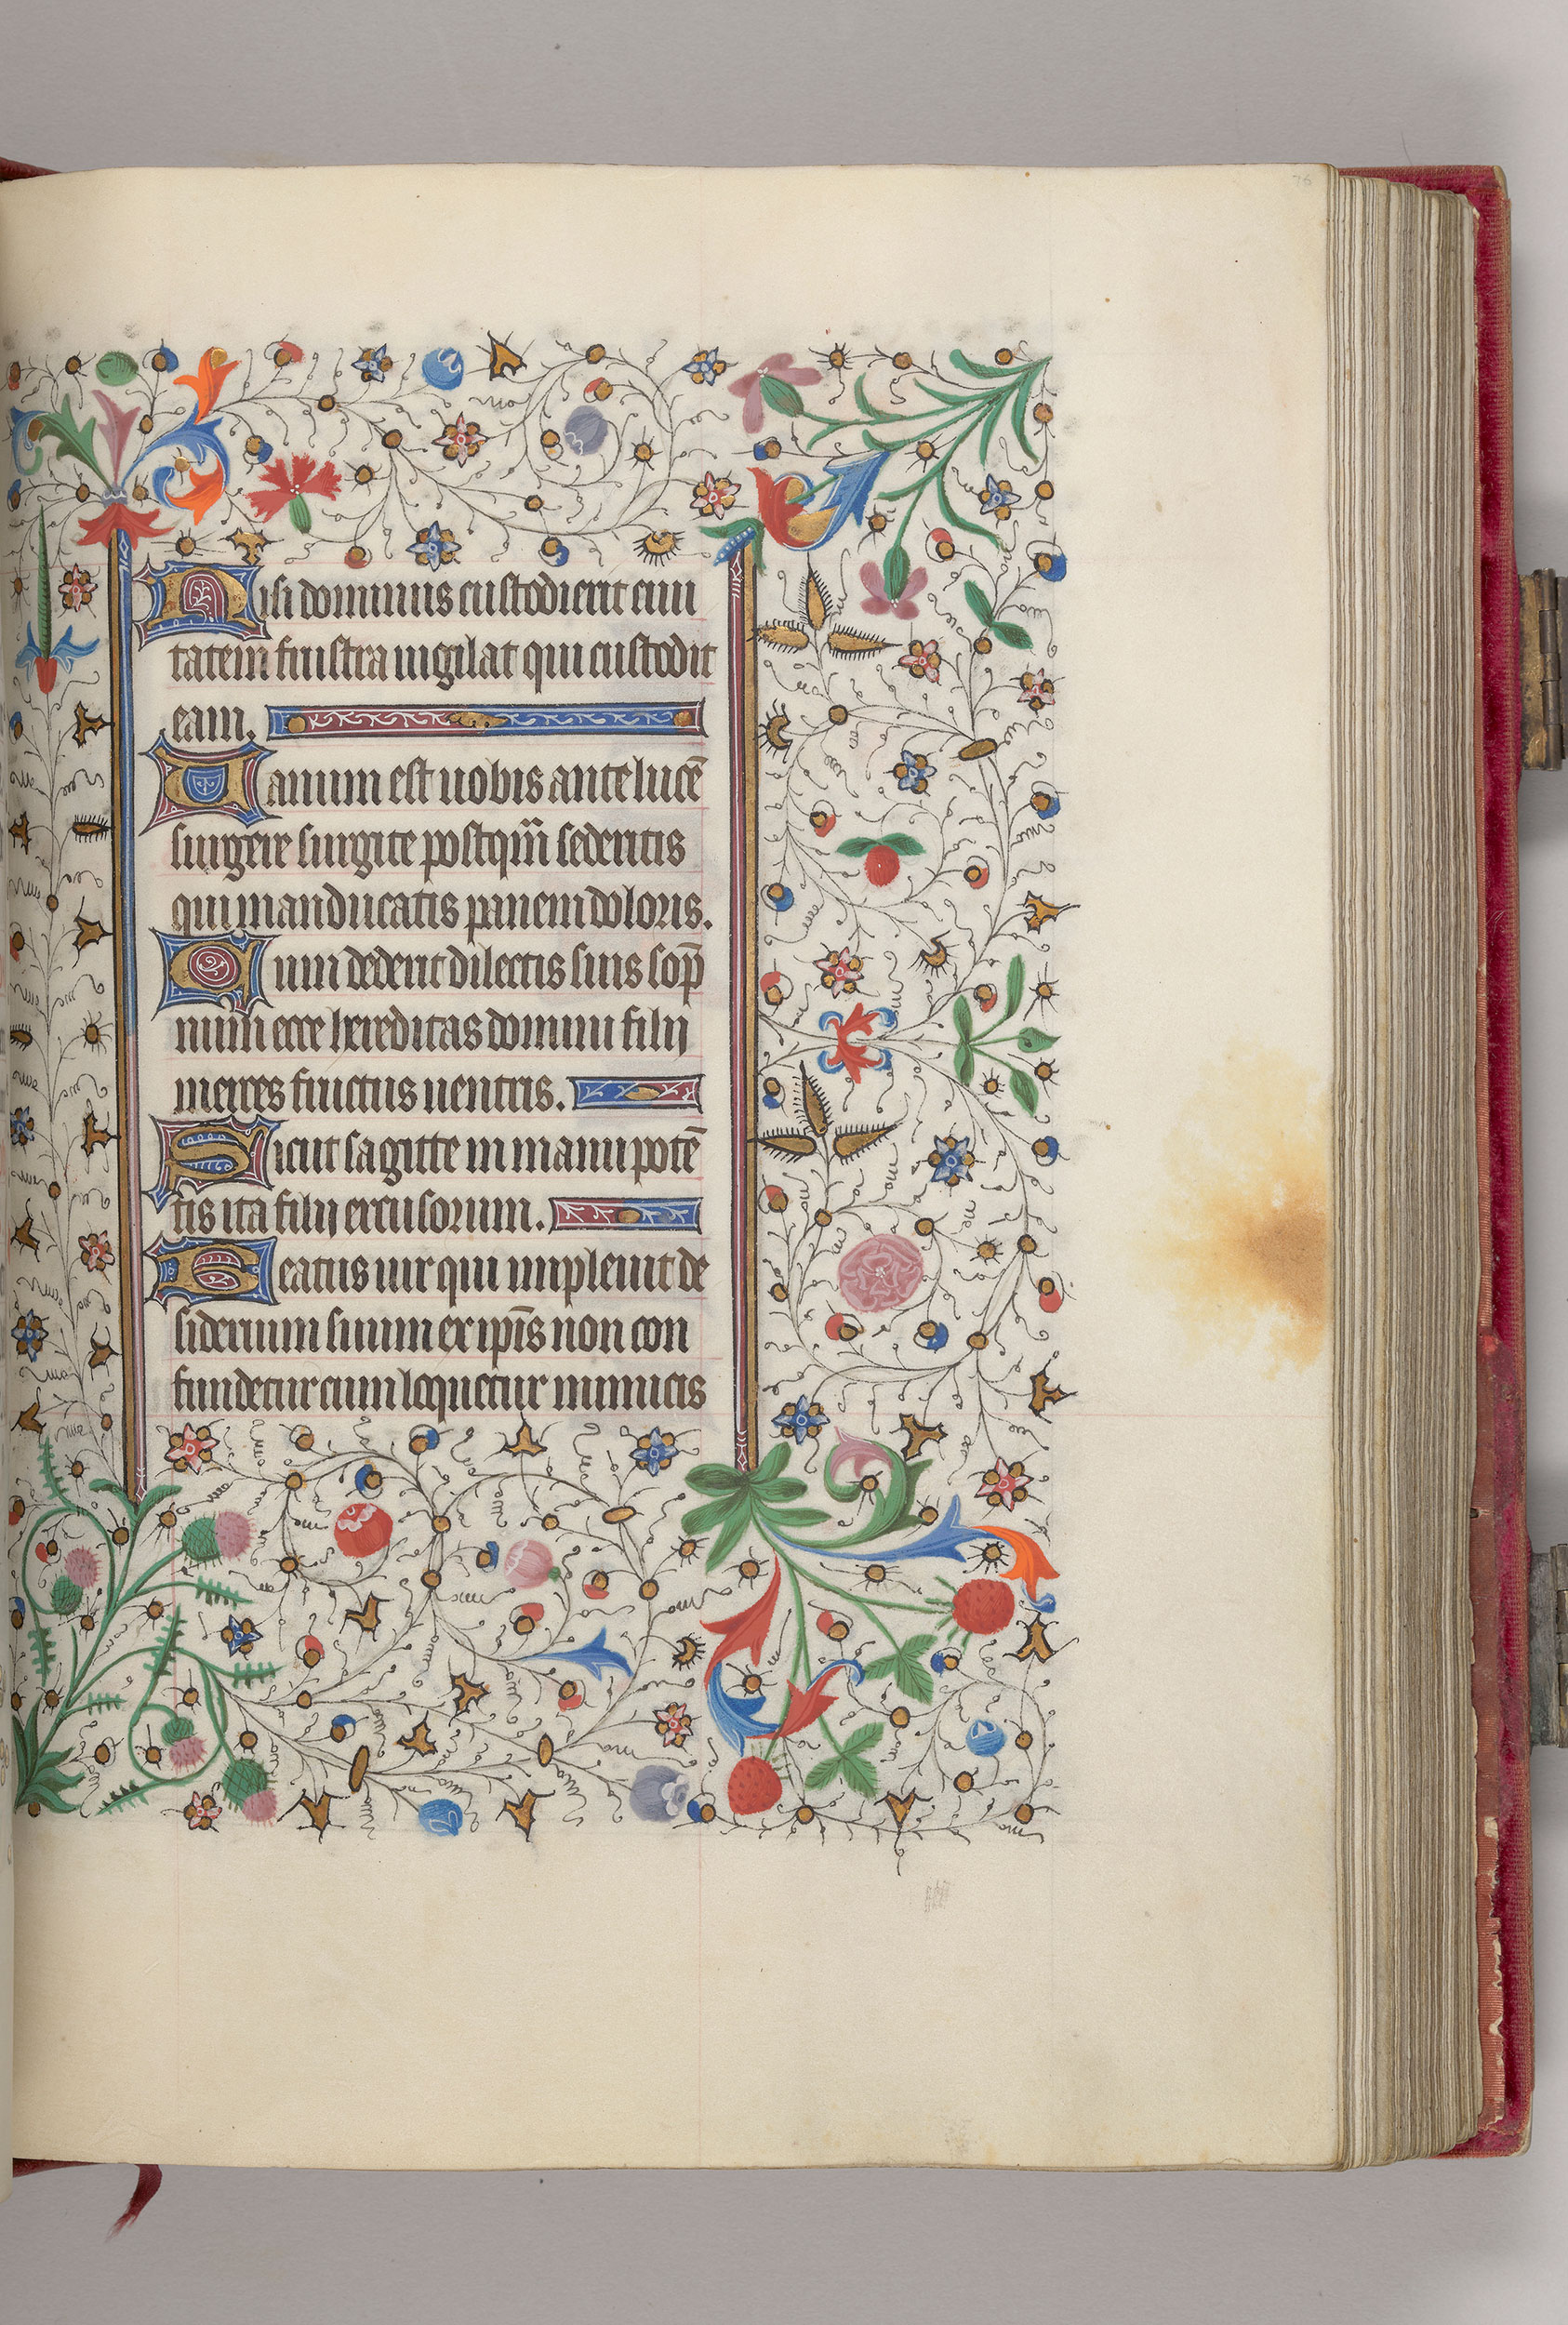 76
Nisi dominus custodierit ciui
tatem frustra uigilat qui custodit
eam.
Uanum est uobis ante lucē
surgere surgite postqm̄ sederitis
qui manducatis panem doloris.
Cum dederit dilectis suis sop̄
num ecce hereditas domini filij
merces fructus uentris.
Sicut sagitte in manu potē
tis ita filij excusorum.
Beatus uir qui impleuit de
siderium suum ex ip̄is non con
fundetur cum loquetur inimicis